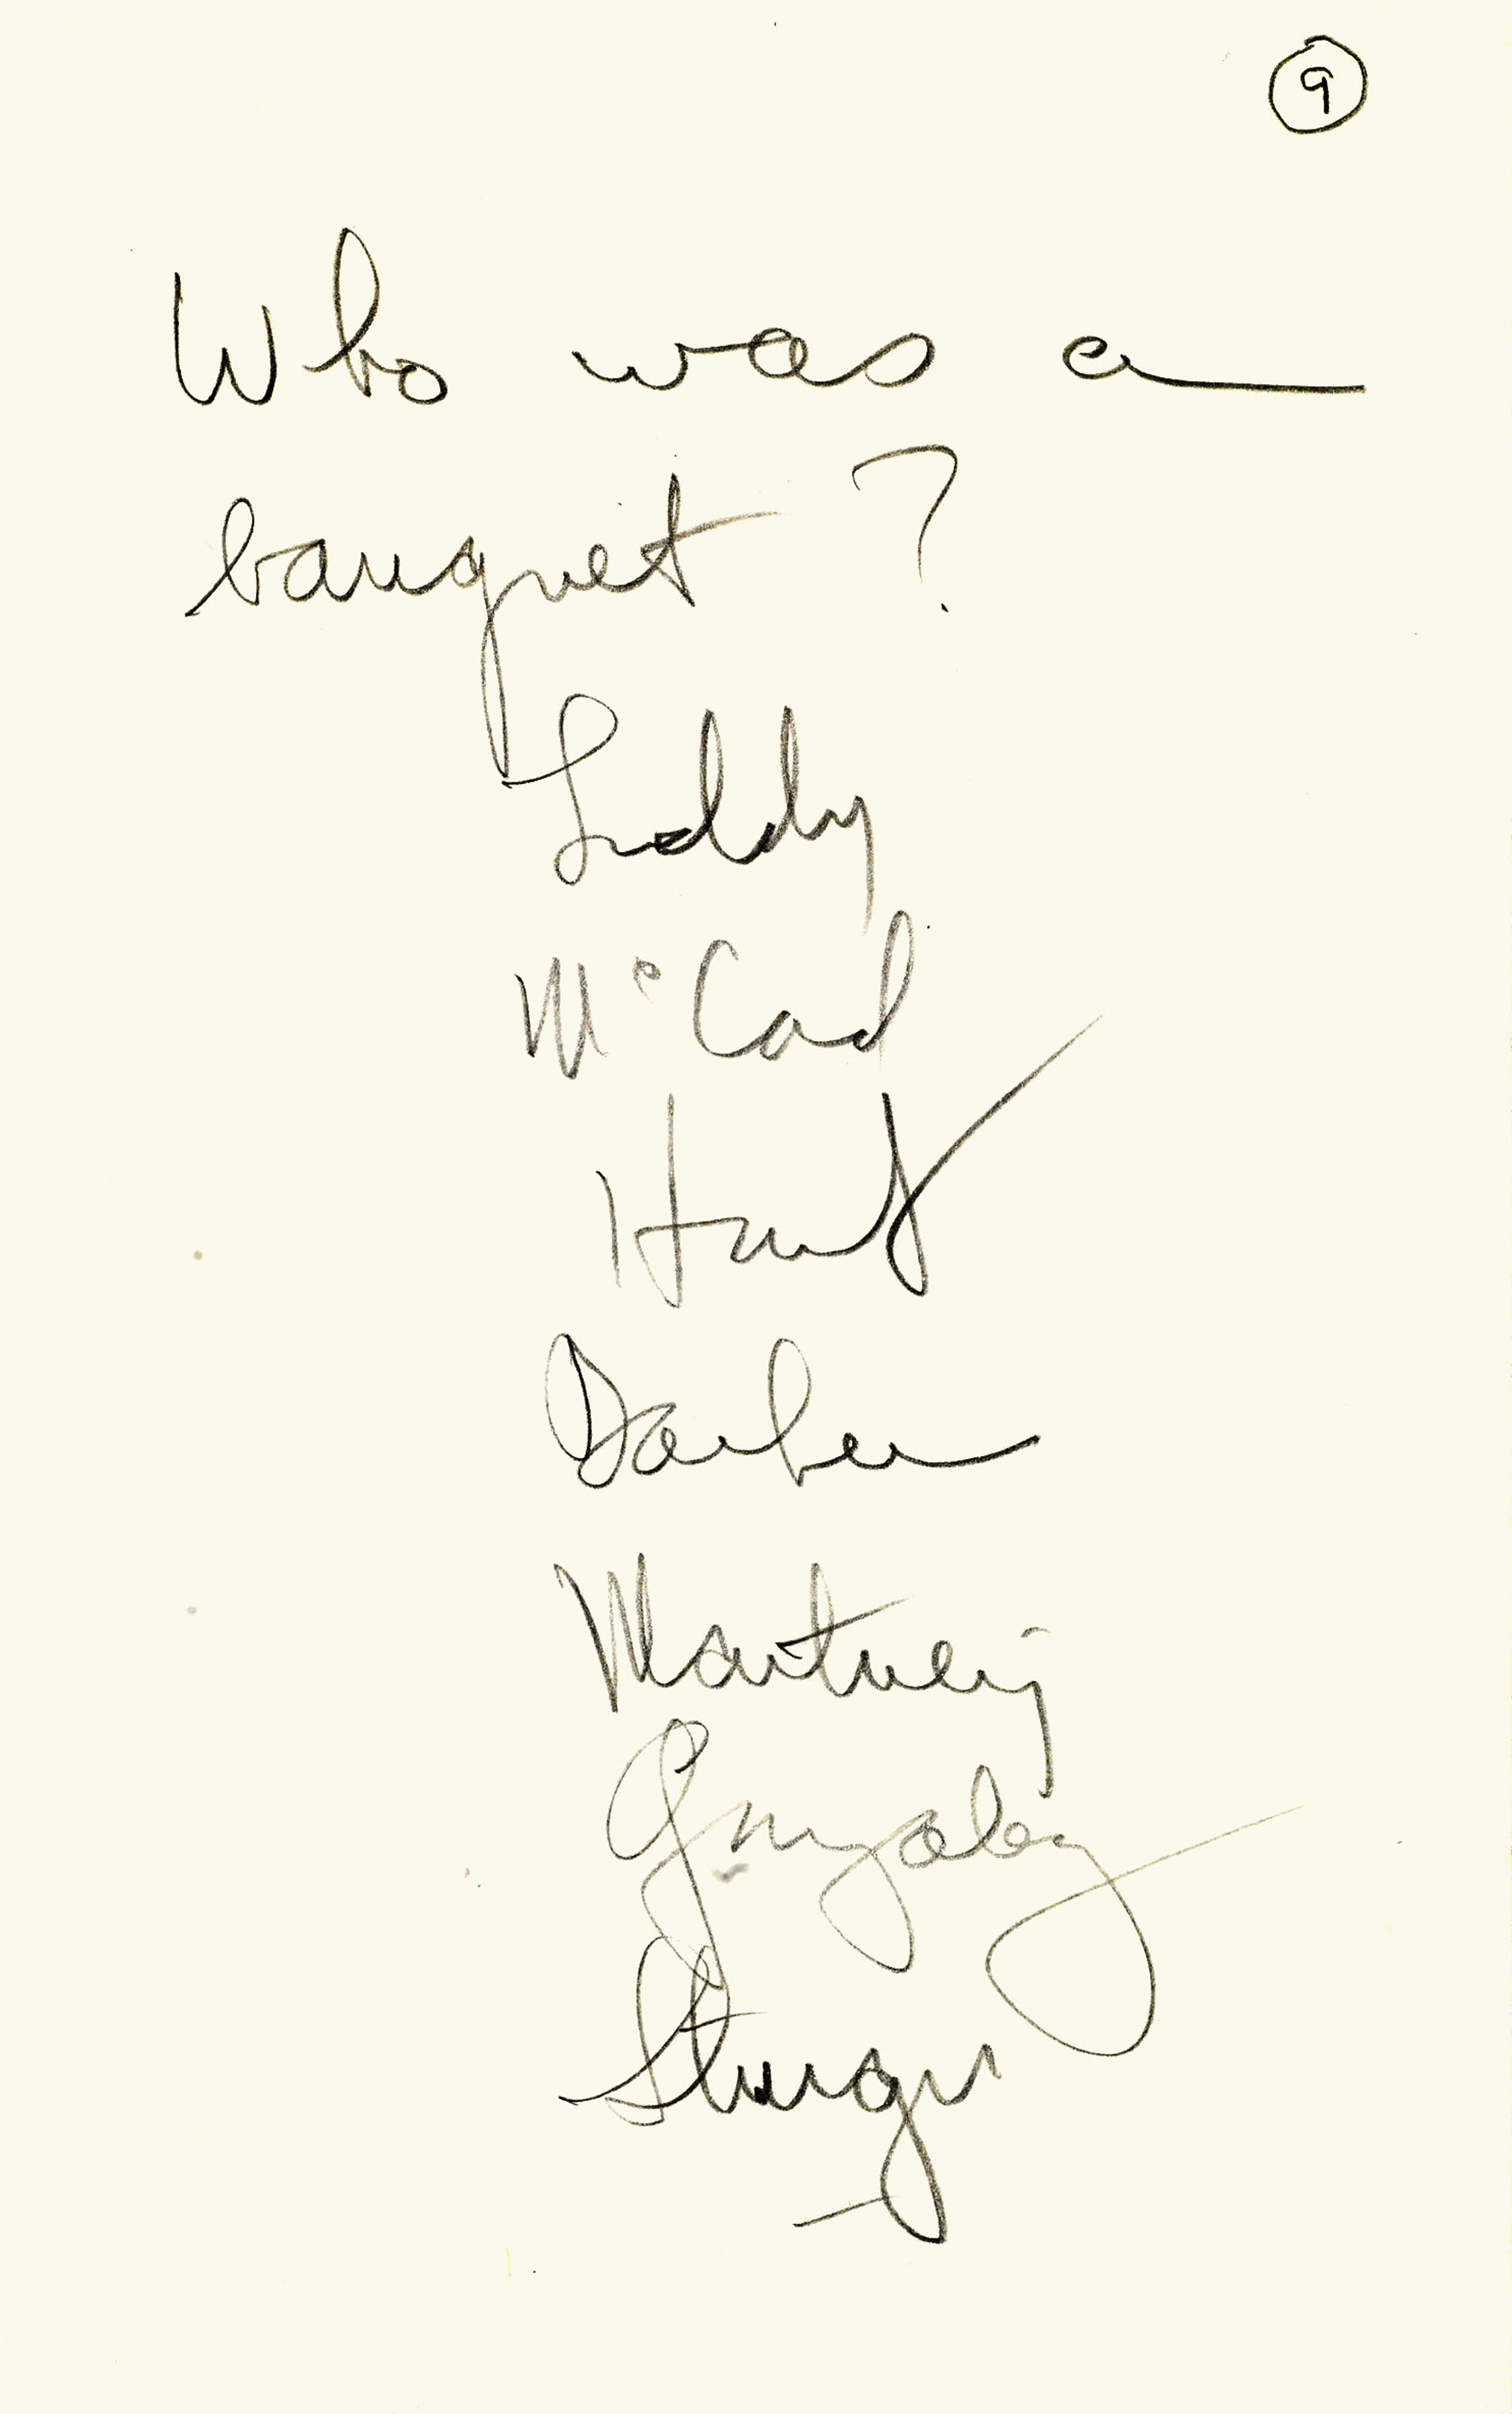 9
Who was a
banquet?
Liddy
McCord
Hunt
Barker
Martinez
Gonzalez
Sturgis